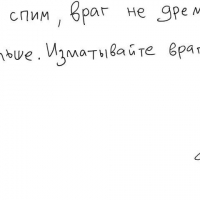 спим, враг не дрем
ьше. Изматывайте враг